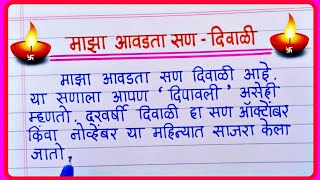 माझा आवडता सण - दिवाळी
माझा आवडता सण दिवाळी आहे.
या सणाला आपण ' दिपावली ' असेही
म्हणतो. दरवर्षी दिवाळी हा सण ऑक्टोंबर
किंवा नोव्हेंबर या महिन्यात साजरा केला
जातो.